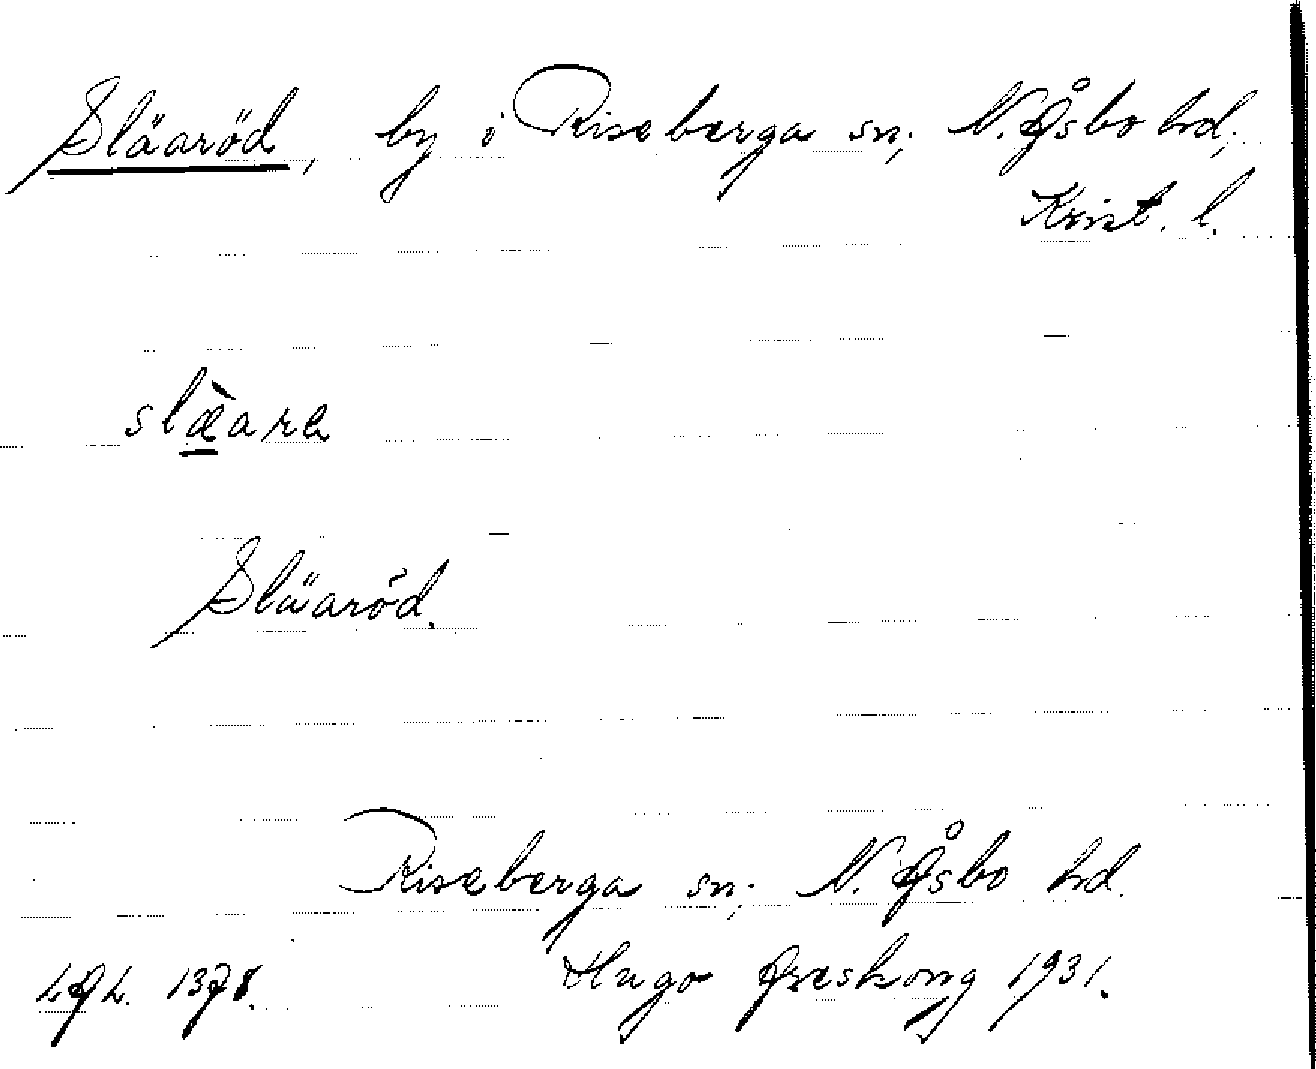 Släaröd, by i Riseberga sn; N. Åsbo hd;
Krist. l.
slæ̀ara
Släaröd.
Riseberga sn; N. Åsbo hd.
Hugo Areskoug 1931.